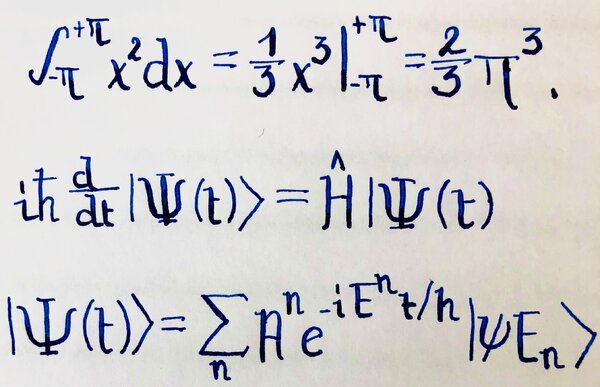 ∫₋π⁺π x²dx = 1/3 x³|₋π⁺π = 2/3 π³.
iħ d/dt |Ψ(t)⟩ = Ĥ|Ψ(t)
|Ψ(t)⟩ = ∑ₙ Aⁿ e^(-iEⁿt/ħ) |ψEₙ⟩